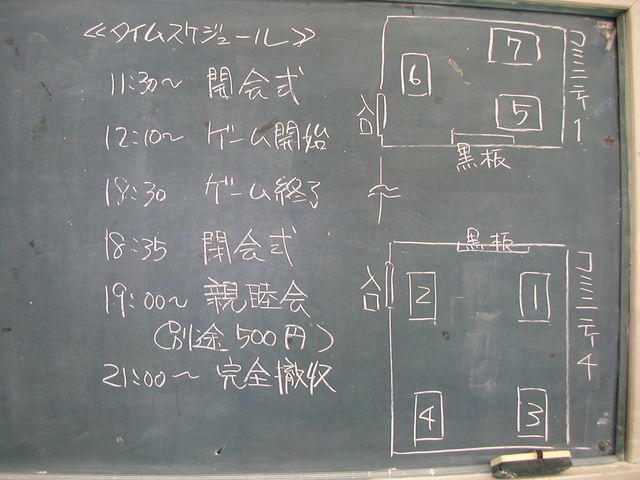 ≪タイムスケジュール≫
11:30〜 開会式
12:10〜 ゲーム開始
18:30 ゲーム終了
18:35 閉会式
19:00〜 親睦会
(別途500円)
21:00〜 完全撤収
コミニティ1
7
6
5
入口
黒板
コミニティ4
黒板
入口
2
1
4
3